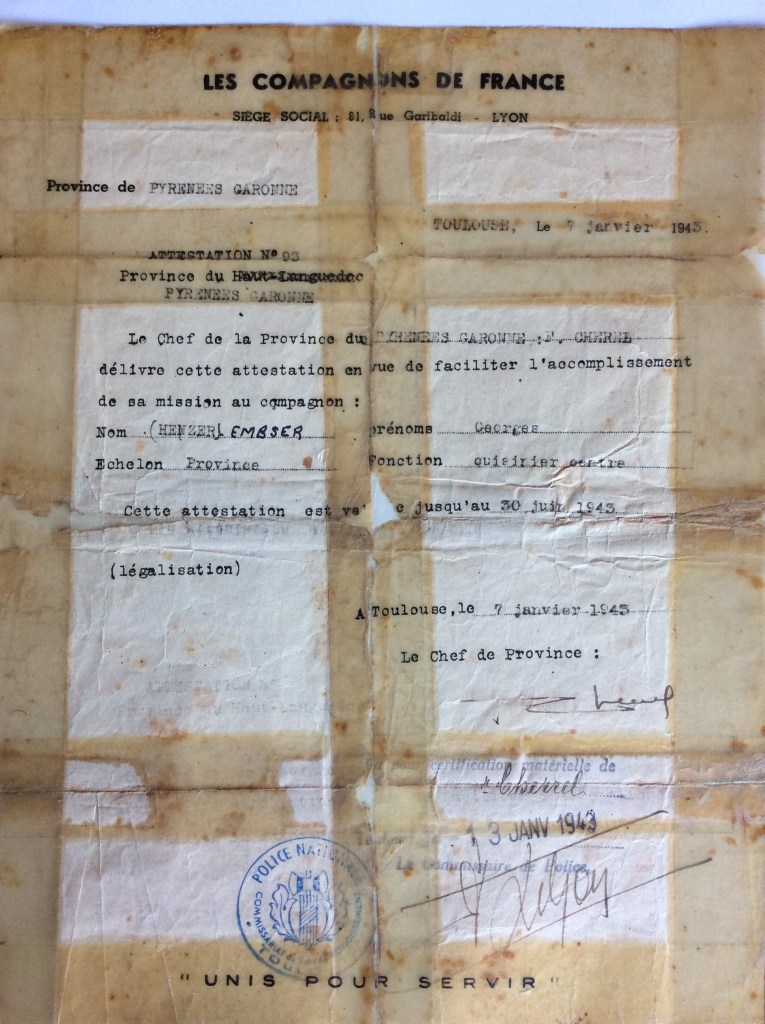 LES COMPAGNONS DE FRANCE
SIÈGE SOCIAL : 81, Rue Garibaldi - LYON
Province de PYRENEES GARONNE
TOULOUSE, Le 7 janvier 1943.
ATTESTATION N° 93
Province du Haut-Languedoc
PYRENEES GARONNE
Le Chef de la Province du PYRENEES GARONNE : F. CHEREL
délivre cette attestation en vue de faciliter l'accomplissement
de sa mission au compagnon :
Nom (HENZER) EMBSER prénoms Georges
Echelon Province Fonction cuisinier centre
Cette attestation est va e jusqu'au 30 juin 1943
(légalisation)
A Toulouse, le 7 janvier 1943
Le Chef de Province :
ATTESTATION N°
Province du Haut-Languedoc
pour certification matérielle de
Cherrel
13 JANV 1943
Le Commissaire de Police,
POLICE NATIONALE
COMMISSARIAT
" UNIS POUR SERVIR "